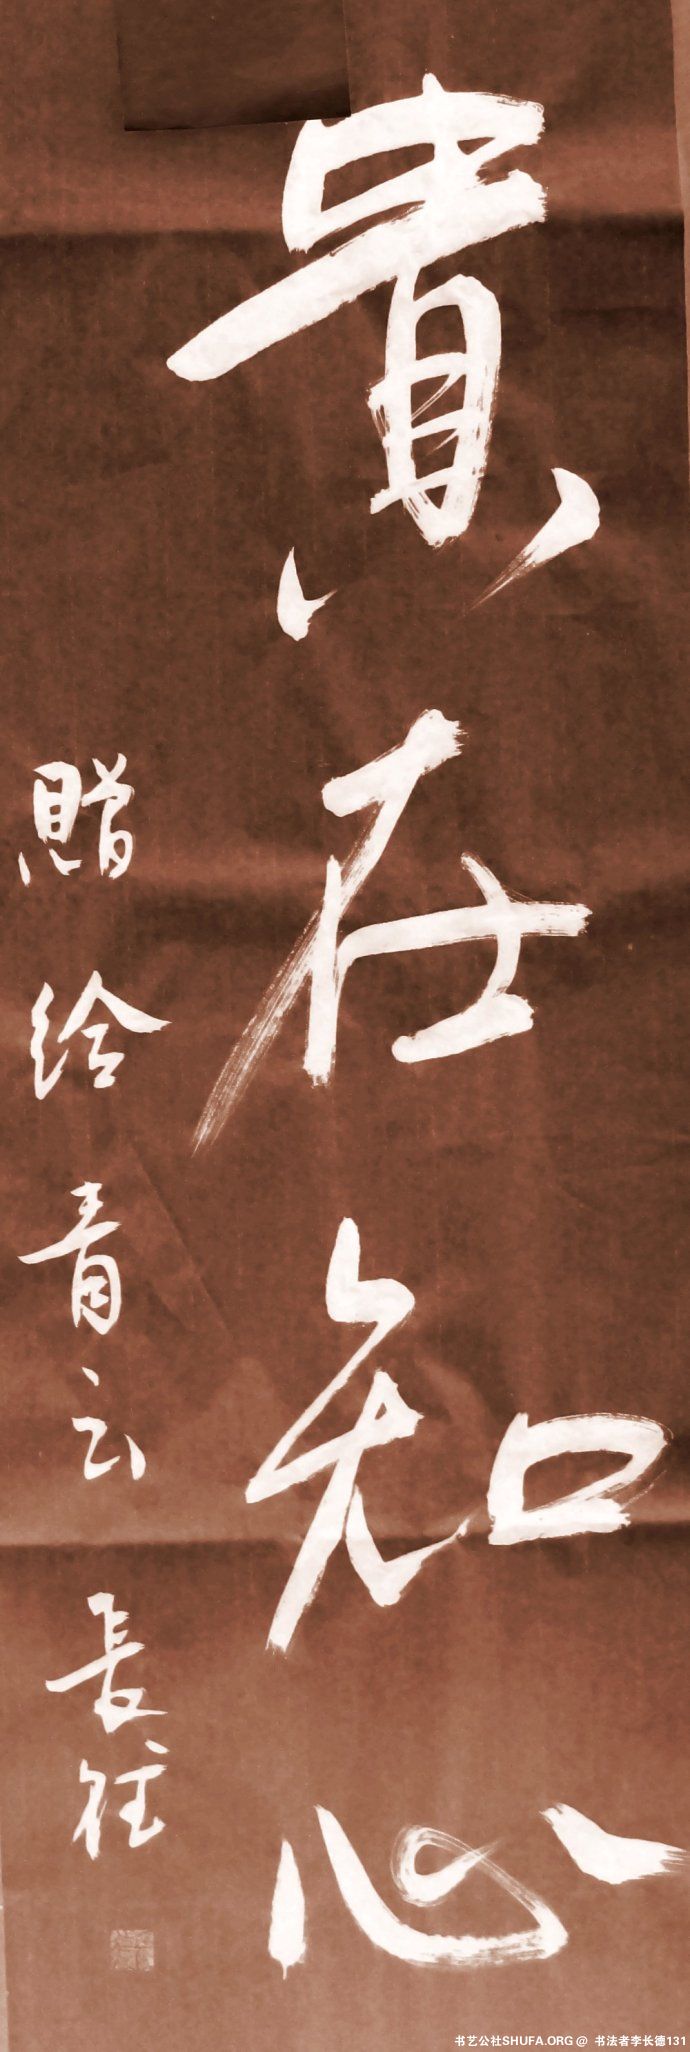 貴在知心
贈給青云 長往
书艺公社SHUFA.ORG @ 书法者李长德131